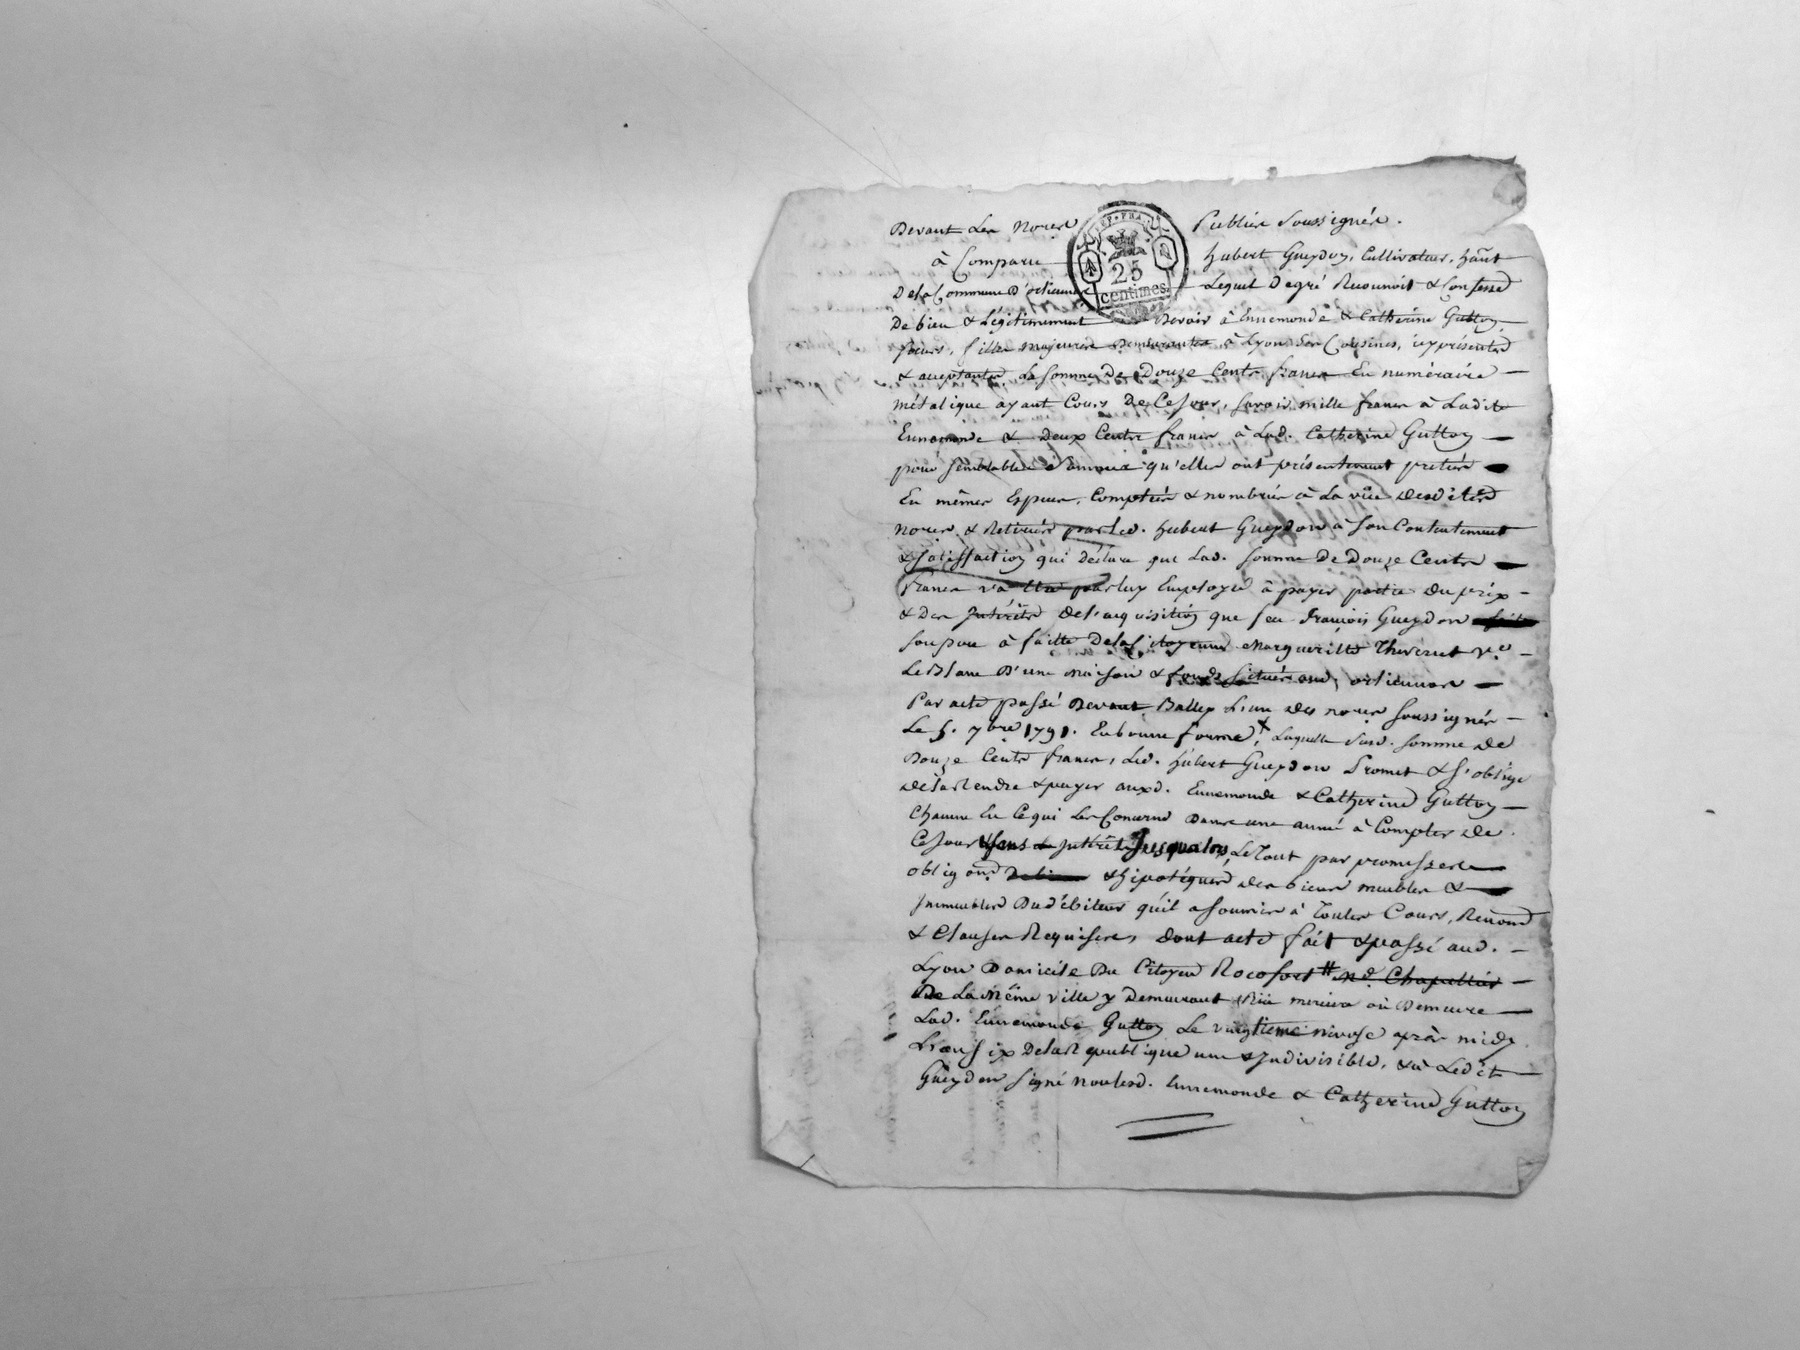 Devant Les Nores Publics Soussignés.
REP. FRA.
25
centimes.
à Comparu Hubert Gueydon, Cultivateur, hañt
De la Commune D'orlienas Lequel De gré Reconnoit & Confesse
De bien & Légitimement Devoir à Ennemonde & Catherine Gutton
soeurs, filles majeures Demeurantes à Lyon Ses Cousines, icy présentes
& acceptantes La Somme De Douze Cents francs En numéraire
métalique ayant Cours De Ce Jour, savoir mille francs à Ladite
Ennemonde & Deux Cents francs à Lad. Catherine Gutton
pour semblables Sommes qu'elles ont présentement pretées
En mêmes Espèces, Comptées & nombrées à La vüe Desdites
Nores. & Retirées par Led. Hubert Gueydon à Son Contentement
& satisffaction qui déclare que Lad. somme De Douze Cents
francs va être par luy Employée à payer partie Du prix
& Des Intérêts De l'acquisition que feu François Gueydon
Son pere à faitte De la Citoyenne Margueritte Thivenet Ve.
Le Blanc D'une maison & fonds Situés aud. orlienas
Par acte passé Devant Balley L'un des nores soussignés
Le 5. 7bre 1791. En bonne forme, Laquelle Susd. somme de
Douze Cents francs, Led. Hubert Gueydon Promet & s'oblige
de la Rendre & payer auxd. Ennemonde & Catherine Gutton
Chacune En Ce qui Les Concerne Dans une année à Compter de
Ce Jour & sans Intérêts Jusqu'alors, Le Tout par promesses
obligons. & hipotéques des biens meubles &
Immeubles Du débiteur qu'il a soumis à Toutes Cours, Renons
& Clauses Requises, Dont acte fait & passé aud.
Lyon Domicile Du Citoyen Rocofort # nd. Chapellier
De La Même ville y Demeurant Rüe mercière où Demeure
Lad. Ennemonde Gutton Le vingtieme nivose après midy
L'an six De la Republique une & Indivisible, & à Ledit
Gueydon signé non lesd. Ennemonde & Catherine Gutton